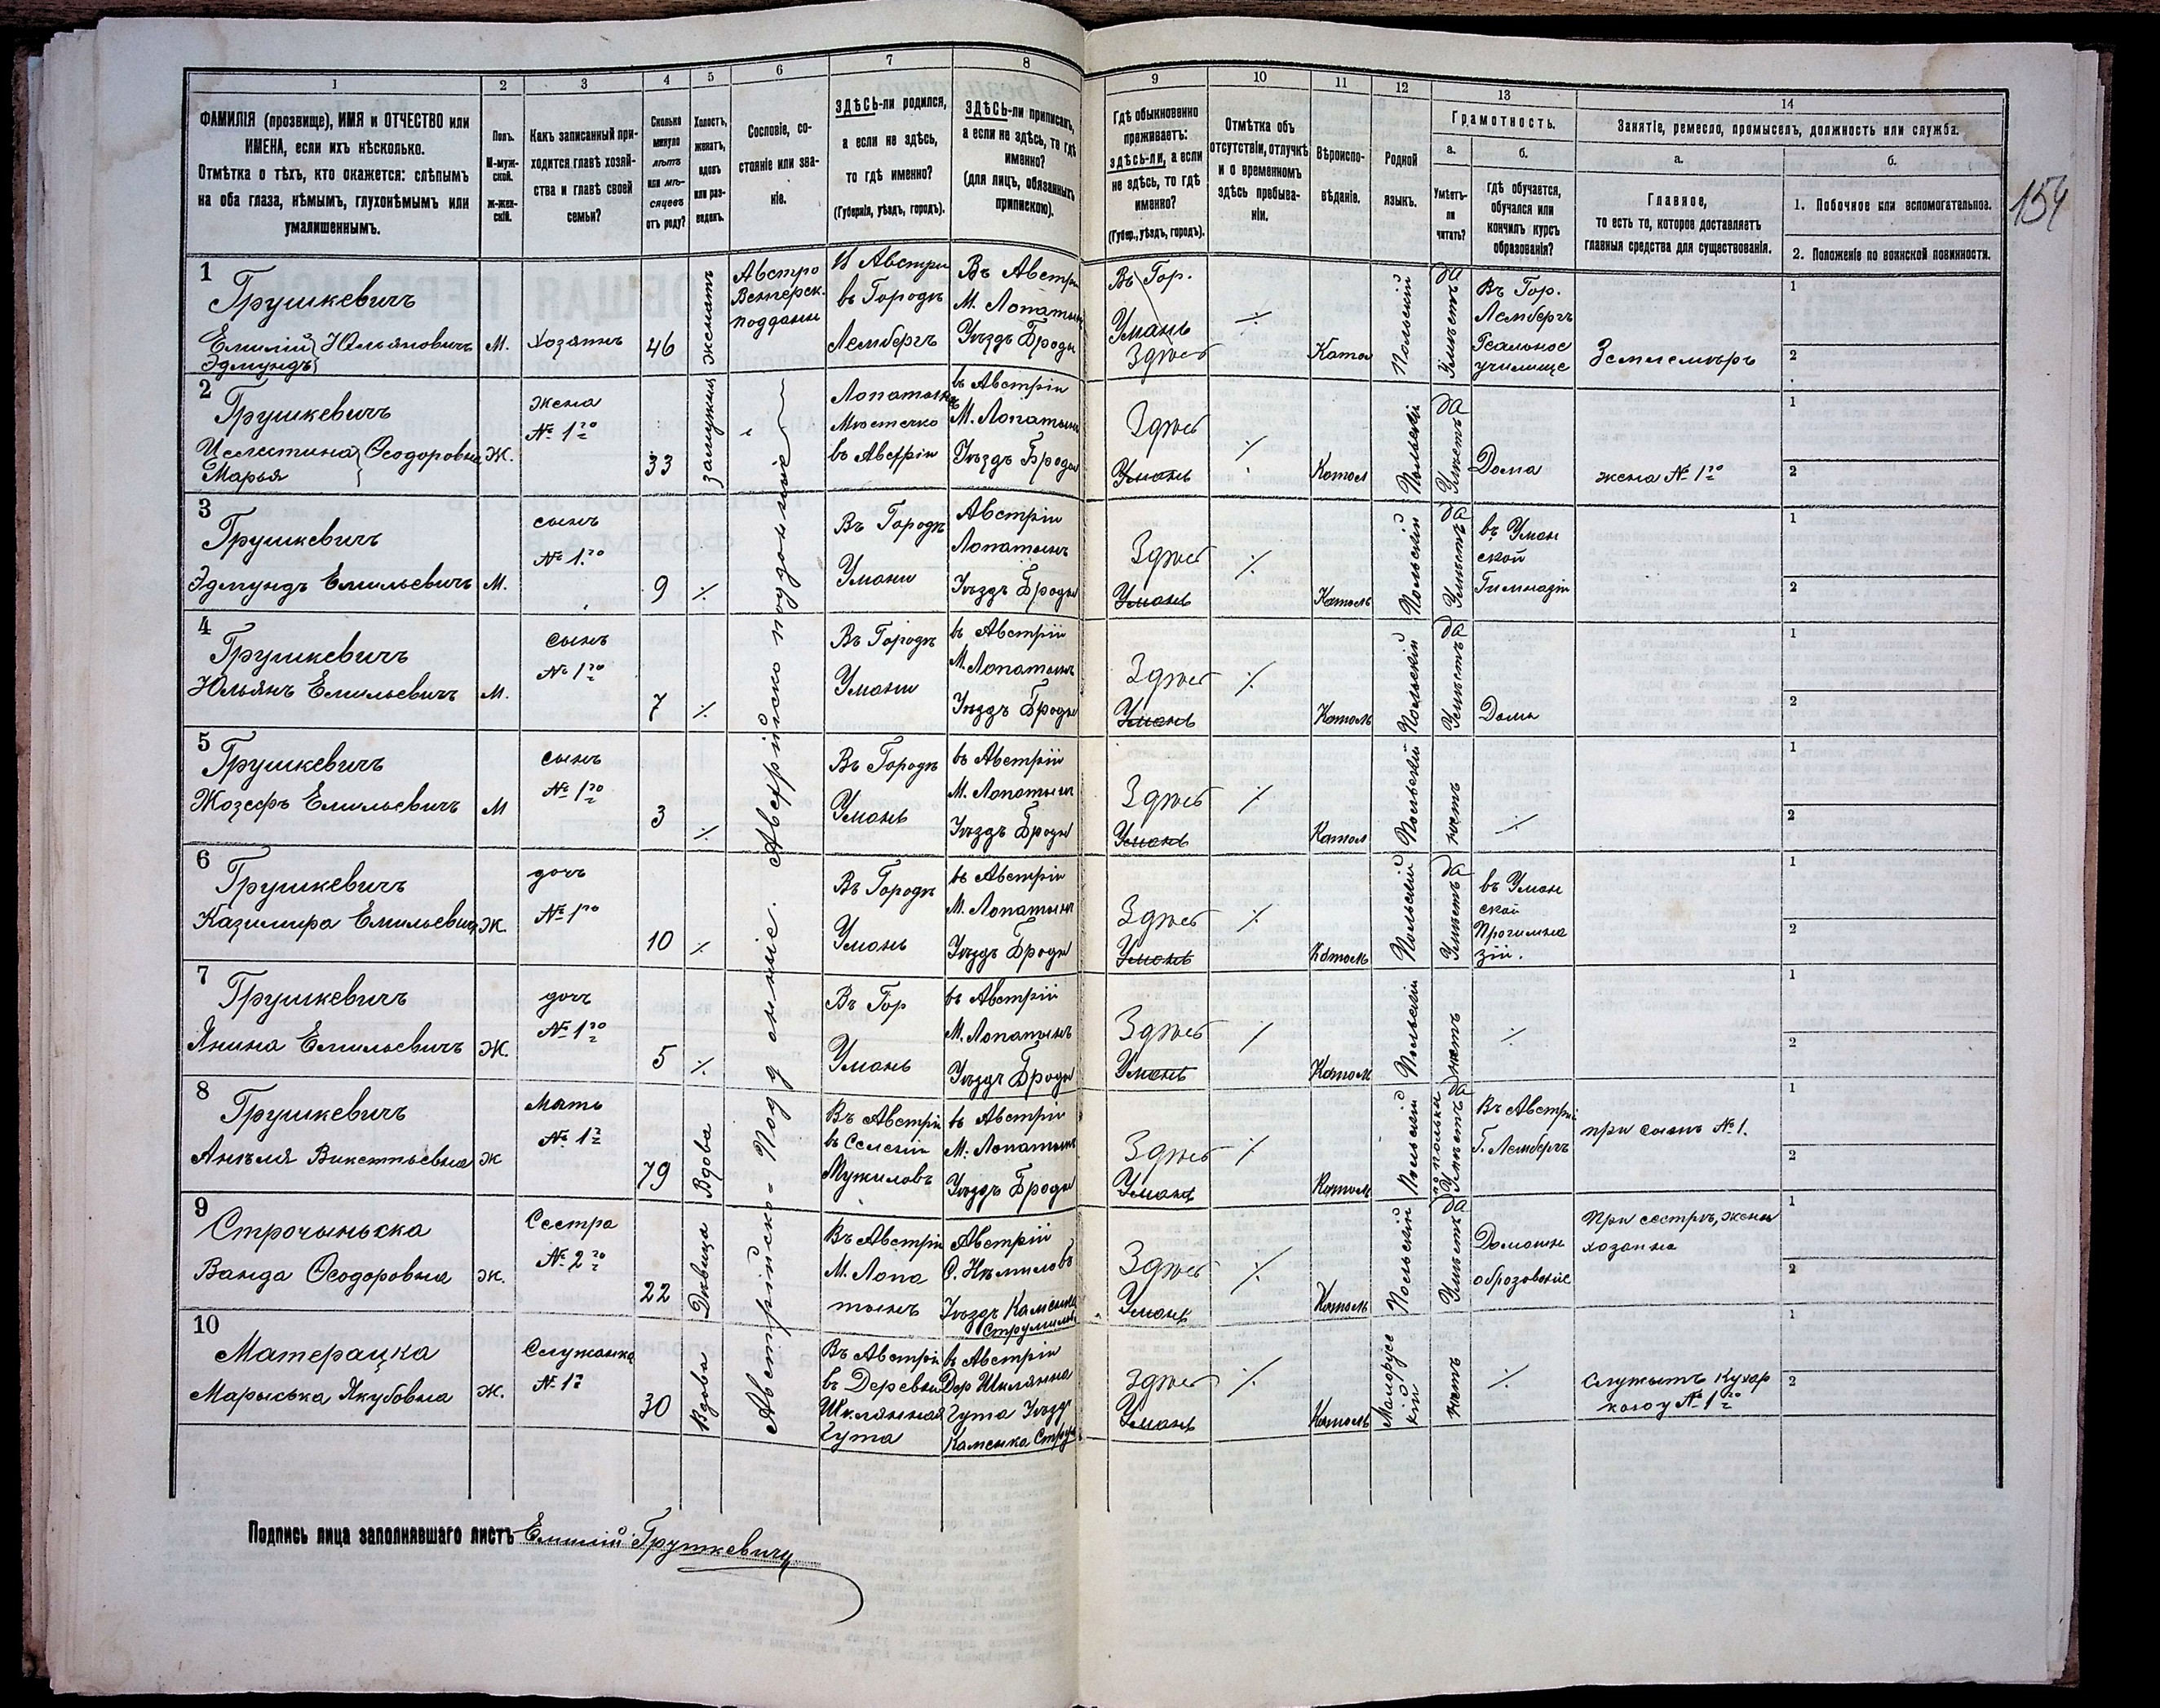 1
2
3
4
5
6
7
8
9
10
11
12
13
14
ФАМИЛІЯ (прозвище), ИМЯ и ОТЧЕСТВО или
ИМЕНА, если ихъ нѣсколько.
Отмѣтка о тѣхъ, кто окажется: слѣпымъ
на оба глаза, нѣмымъ, глухонѣмымъ или
умалишеннымъ.
Полъ.
М-муж-
ской.
Ж-жен-
скій.
Какъ записанный при-
ходится главѣ хозяй-
ства и главѣ своей
семьи?
Сколько
минуло
лѣтъ
или мѣ-
сяцевъ
отъ роду?
Холостъ,
женатъ,
вдовъ
или раз-
веденъ.
Сословіе, со-
стояніе или зва-
ніе.
ЗДѢСЬ-ли родился,
а если не здѣсь,
то гдѣ именно?
(Губернія, уѣздъ, городъ).
ЗДѢСЬ-ли приписанъ,
а если не здѣсь, то гдѣ
именно?
(для лицъ, обязанныхъ
припискою).
Гдѣ обыкновенно
проживаетъ:
здѣсь-ли, а если
не здѣсь, то гдѣ
именно?
(Губер., уѣздъ, городъ).
Отмѣтка объ
отсутствіи, отлучкѣ
и о временномъ
здѣсь пребыва-
ніи.
Вѣроиспо-
вѣданіе.
Родной
языкъ.
Грамотность.
а.
Умѣетъ-
ли
читать?
б.
гдѣ обучается,
обучался или
кончилъ курсъ
образованія?
Занятіе, ремесло, промыселъ, должность или служба.
а.
Главное,
то есть то, которое доставляетъ
главныя средства для существованія.
б.
1. Побочное или вспомогательное.
2. Положеніе по воинской повинности.
154
1
Грушкевичъ
Емилій Юльяновичъ
Эдмундъ
М.
Хозяинъ
46
женатъ
Австро
Венгерск.
поддани
И Австріи
въ Городѣ
Лембергъ
Въ Австріи
М. Лопатынъ
Уѣздъ Броды
Въ Гор.
Умань
Здѣсь
Като
Польскій
да
Умѣетъ
Въ Гор.
Лембергъ
Реальное
училище
Землемѣръ
1
2
2
Грушкевичъ
Целестина Ѳеодоровна
Марья
Ж.
жена
№ 1го
33
Замужня
Австрійско подданные
Лопатынъ
Мѣстечко
въ Австріи
въ Австріи
М. Лопатынъ
Уѣздъ Броды
Здѣсь
Умань
Катол
Польскій
да
Умѣетъ
Дома
жена № 1го
1
2
3
Грушкевичъ
Эдмундъ Емильевичъ
М.
сынъ
№ 1го
9
Въ Городѣ
Умани
Австріи
Лопатынъ
Уѣздъ Броды
Здѣсь
Умань
Католь
Польскій
да
Умѣетъ
въ Уман
ской
Гимназіи
1
2
4
Грушкевичъ
Юльянъ Емильевичъ
М.
сынъ
№ 1го
7
Въ Городѣ
Умани
въ Австріи
М. Лопатынъ
Уѣздъ Броды
Здѣсь
Умань
Католь
Польскій
да
Умѣетъ
Дома
1
2
5
Грушкевичъ
Жозефъ Емильевичъ
М
сынъ
№ 1го
3
Въ Городѣ
Умань
въ Австріи
М. Лопатынъ
Уѣздъ Броды
Здѣсь
Умань
Катол
Польскій
нѣтъ
1
2
6
Грушкевичъ
Казимира Емильевичъ
Ж.
дочь
№ 1го
10
Въ Городѣ
Умань
въ Австріи
М. Лопатынъ
Уѣздъ Броды
Здѣсь
Умань
Католь
Польскій
да
Умѣетъ
въ Уман
ской
Прогимна
зіи.
1
2
7
Грушкевичъ
Янина Емильевичъ
Ж.
дочь
№ 1го
5
Въ Гор
Умань
въ Австріи
М. Лопатынъ
Уѣздъ Броды
Здѣсь
Умань
Католь
Польскій
нѣтъ
1
2
8
Грушкевичъ
Анъеля Викентьевна
Ж
Мать
№ 1
79
Вдова
Австрійско-Подданніе.
Въ Австріи
въ Селеніи
Мужиловъ
въ Австріи
М. Лопатынъ
Уѣздъ Броды
Здѣсь
Умань
Католь
Польскій
да
Умѣетъ
по польки
Въ Австріи
Г. Лембергъ
при сынѣ № 1.
1
2
9
Строчыньска
Ванда Ѳеодоровна
Ж.
Сестра
№ 2го
22
Дѣвица
Въ Австріи
М. Лопа
тынъ
Австріи
С. Нѣмиловъ
Уѣздъ Каменка
Струмилова
Здѣсь
Умань
Католь
Польскій
да
Умѣетъ
Домашн
образованіе
При сестрѣ, жены
хозаина
1
2
10
Матерацка
Марыська Якубовна
Ж.
Служанка
№ 1
30
Вдова
Въ Австріи
въ Деревни
Шклянная
Гута
въ Австріи
Дер Шклянна
Гута Уѣздъ
Каменка Струм
Здѣсь
Умань
Католь
Малорусс
кій
нѣтъ
Служытъ Кухар
кою у № 1го
1
2
Подпись лица заполнявшаго листъ Емилій Грушкевичъ